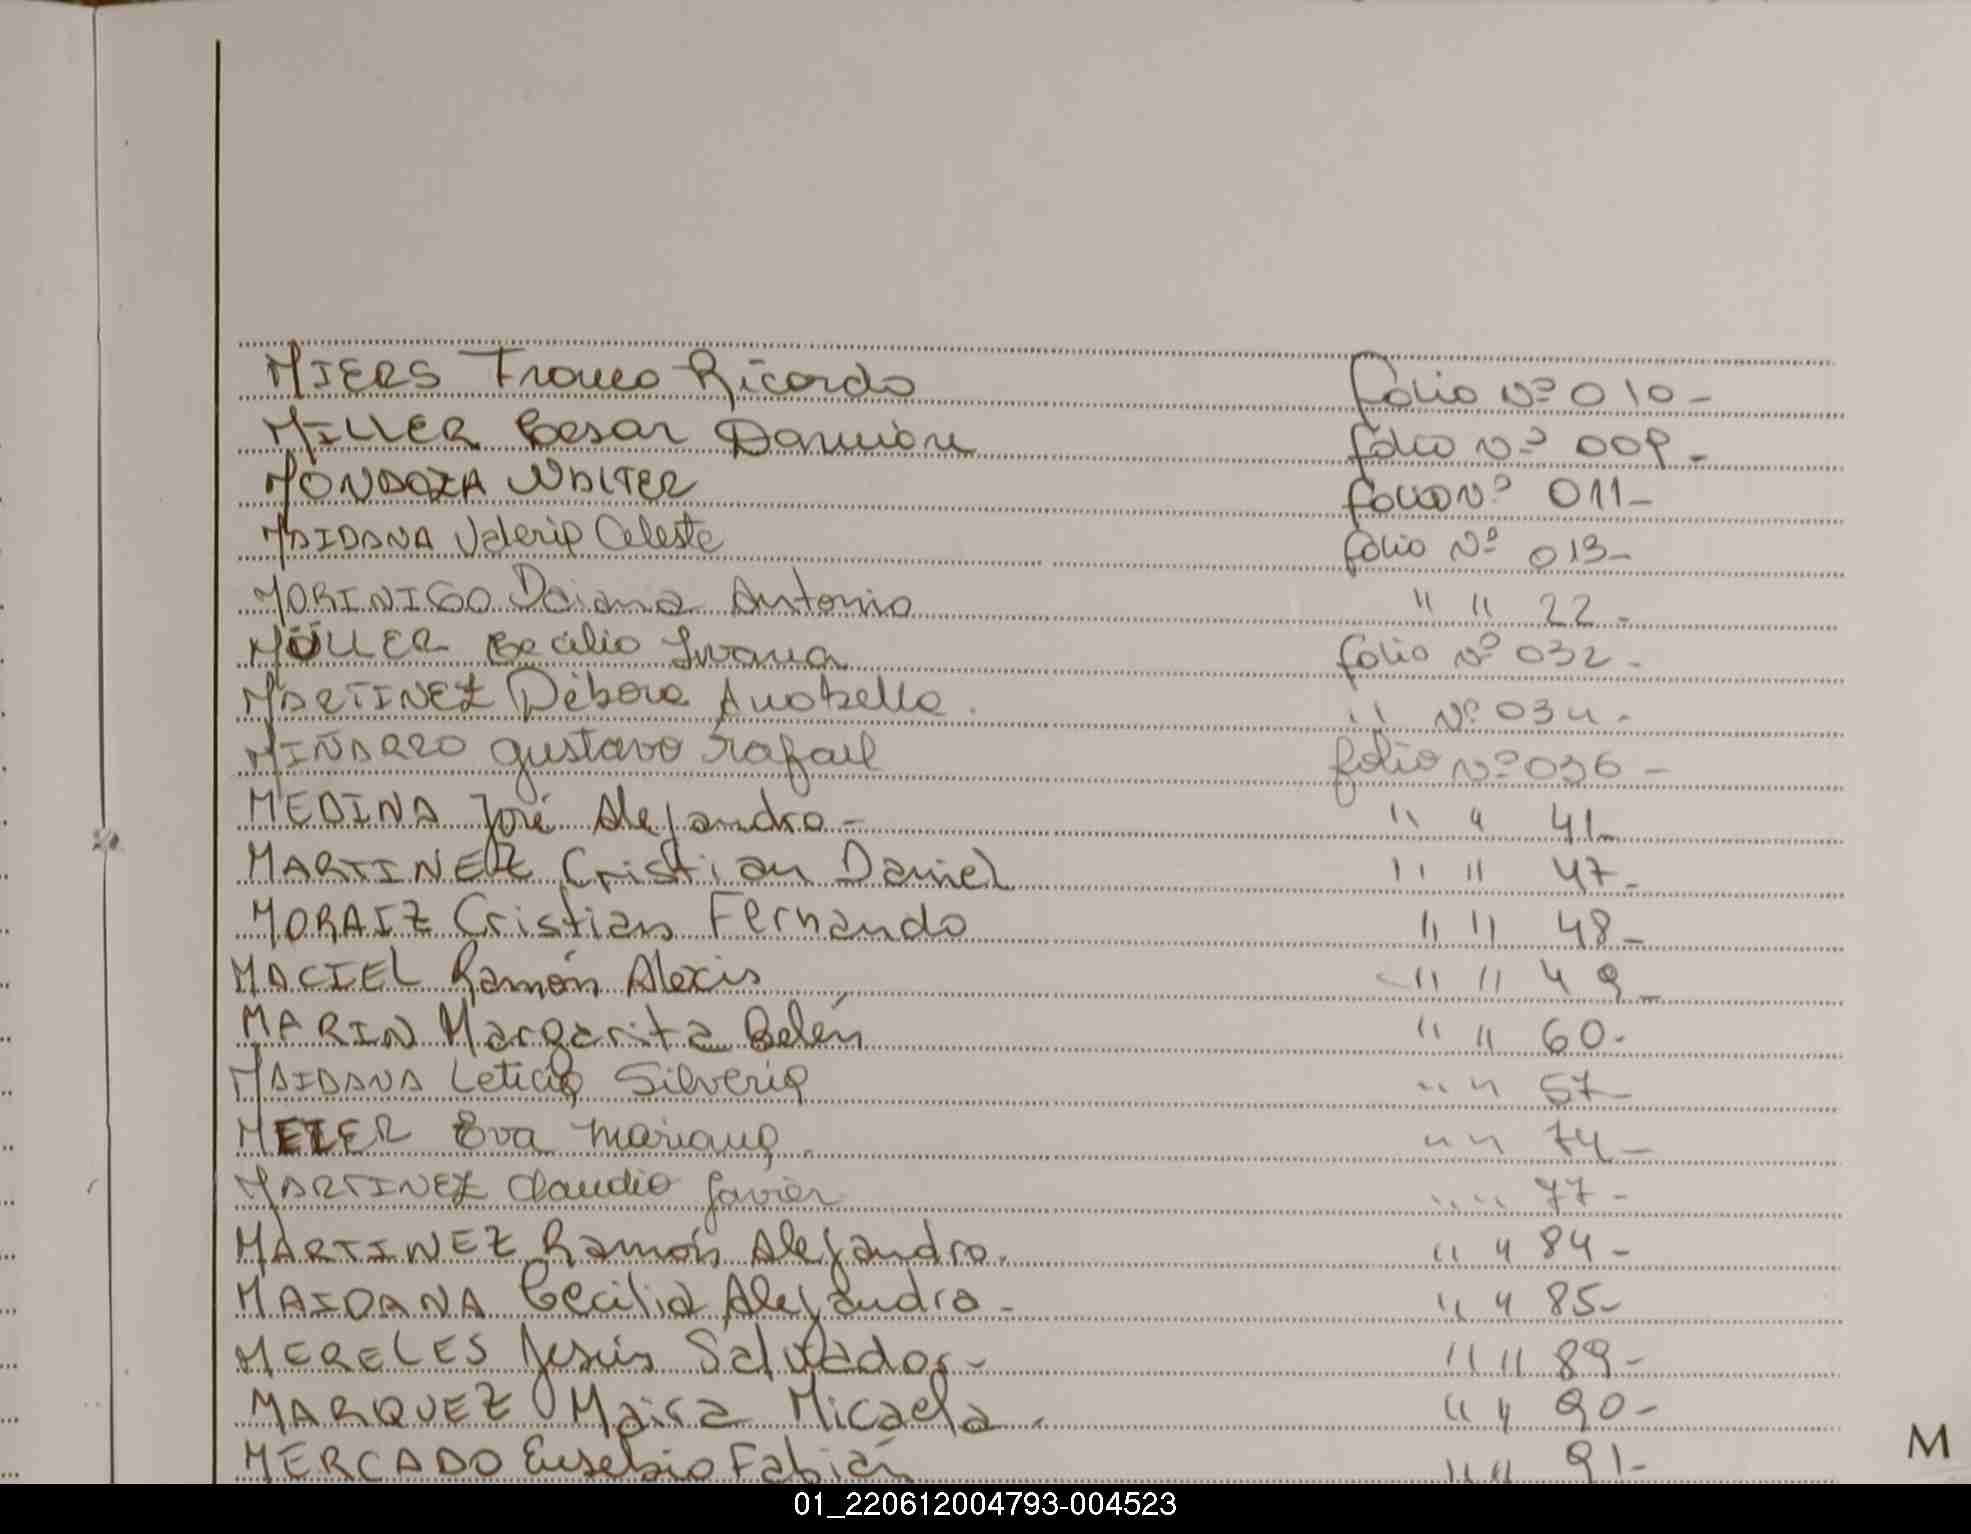 MIERS Franco Ricardo folio Nº 010-
MILLER Cesar Damián folio Nº 009-
MONDOZA WALTER folio Nº 011-
MAIDANA Valeria Celeste folio Nº 013-
MORINIGO Daiana Antonia " " 22-
MÜLLER Cecilia Ivana folio Nº 032-
MARTINEZ Débora Anabella. " Nº 034-
MIÑARRO gustavo rafael folio Nº 036-
MEDINA José Alejandro- " " 41-
MARTINEZ Cristian Daniel " " 47-
MORAIZ Cristian Fernando " " 48-
MACIEL Ramón Alexis " " 49-
MARIN Margarita Belén " " 60-
MAIDANA Leticia Silveria " " 57-
MEIER Eva Mariana. " " 74-
MARTINEZ Claudio Javier " " 77-
MARTINEZ Ramón Alejandro. " " 84-
MAIDANA Cecilia Alejandra- " " 85-
MERELES Jesús Salvador- " " 89-
MARQUEZ Maira Micaela. " " 90-
MERCADO Eusebio Fabián " " 91-
M
01_220612004793-004523